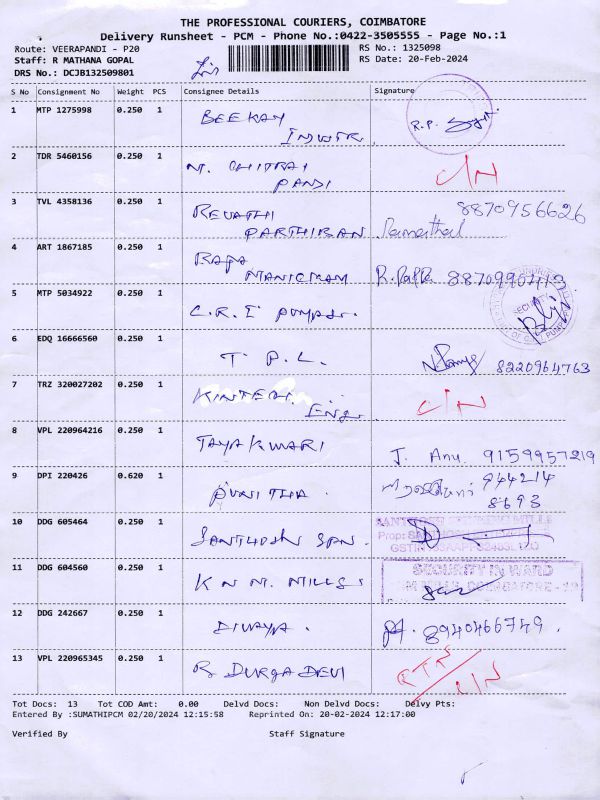 THE PROFESSIONAL COURIERS, COIMBATORE
Delivery Runsheet - PCM - Phone No.:0422-3505555 - Page No.:1
Route: VEERAPANDI - P20 RS No.: 1325098
Staff: R MATHANA GOPAL RS Date: 20-Feb-2024
DRS No.: DCJB132509801
S No Consignment No Weight PCS Consignee Details Signature
1 MTP 1275998 0.250 1 BEEKAY R.P.
2 TDR 5460156 0.250 1 M. CHITRAI C/N
PANDI
3 TVL 4358136 0.250 1 REVATHI 8870956626
PARTHIBAN
4 ART 1867185 0.250 1 RAJA
MANICKAM
5 MTP 5034922 0.250 1 C.R.I PUMPS.
SECURITY
6 EDQ 16666560 0.250 1 T. P. L. 8220964763
7 TRZ 320027202 0.250 1 C/N
Eng.
8 VPL 220964216 0.250 1 JAYAKUMARI J. Anu 9159957219
9 DPI 220426 0.620 1 PUNITHA. 944214
8693
10 DDG 605464 0.250 1 SANTHOSH SPN.
Prop:
11 DDG 604560 0.250 1 K N M. MILLS. SECURITY IN WARD
MILLS, COIMBATORE - 19
12 DDG 242667 0.250 1 DIVAYA. 8940466749.
13 VPL 220965345 0.250 1 R DURGA DEVI RTN
C/N
Tot Docs: 13 Tot COD Amt: 0.00 Delvd Docs: Non Delvd Docs: Delvy Pts:
Entered By :SUMATHIPCM 02/20/2024 12:15:58 Reprinted On: 20-02-2024 12:17:00
Verified By Staff Signature